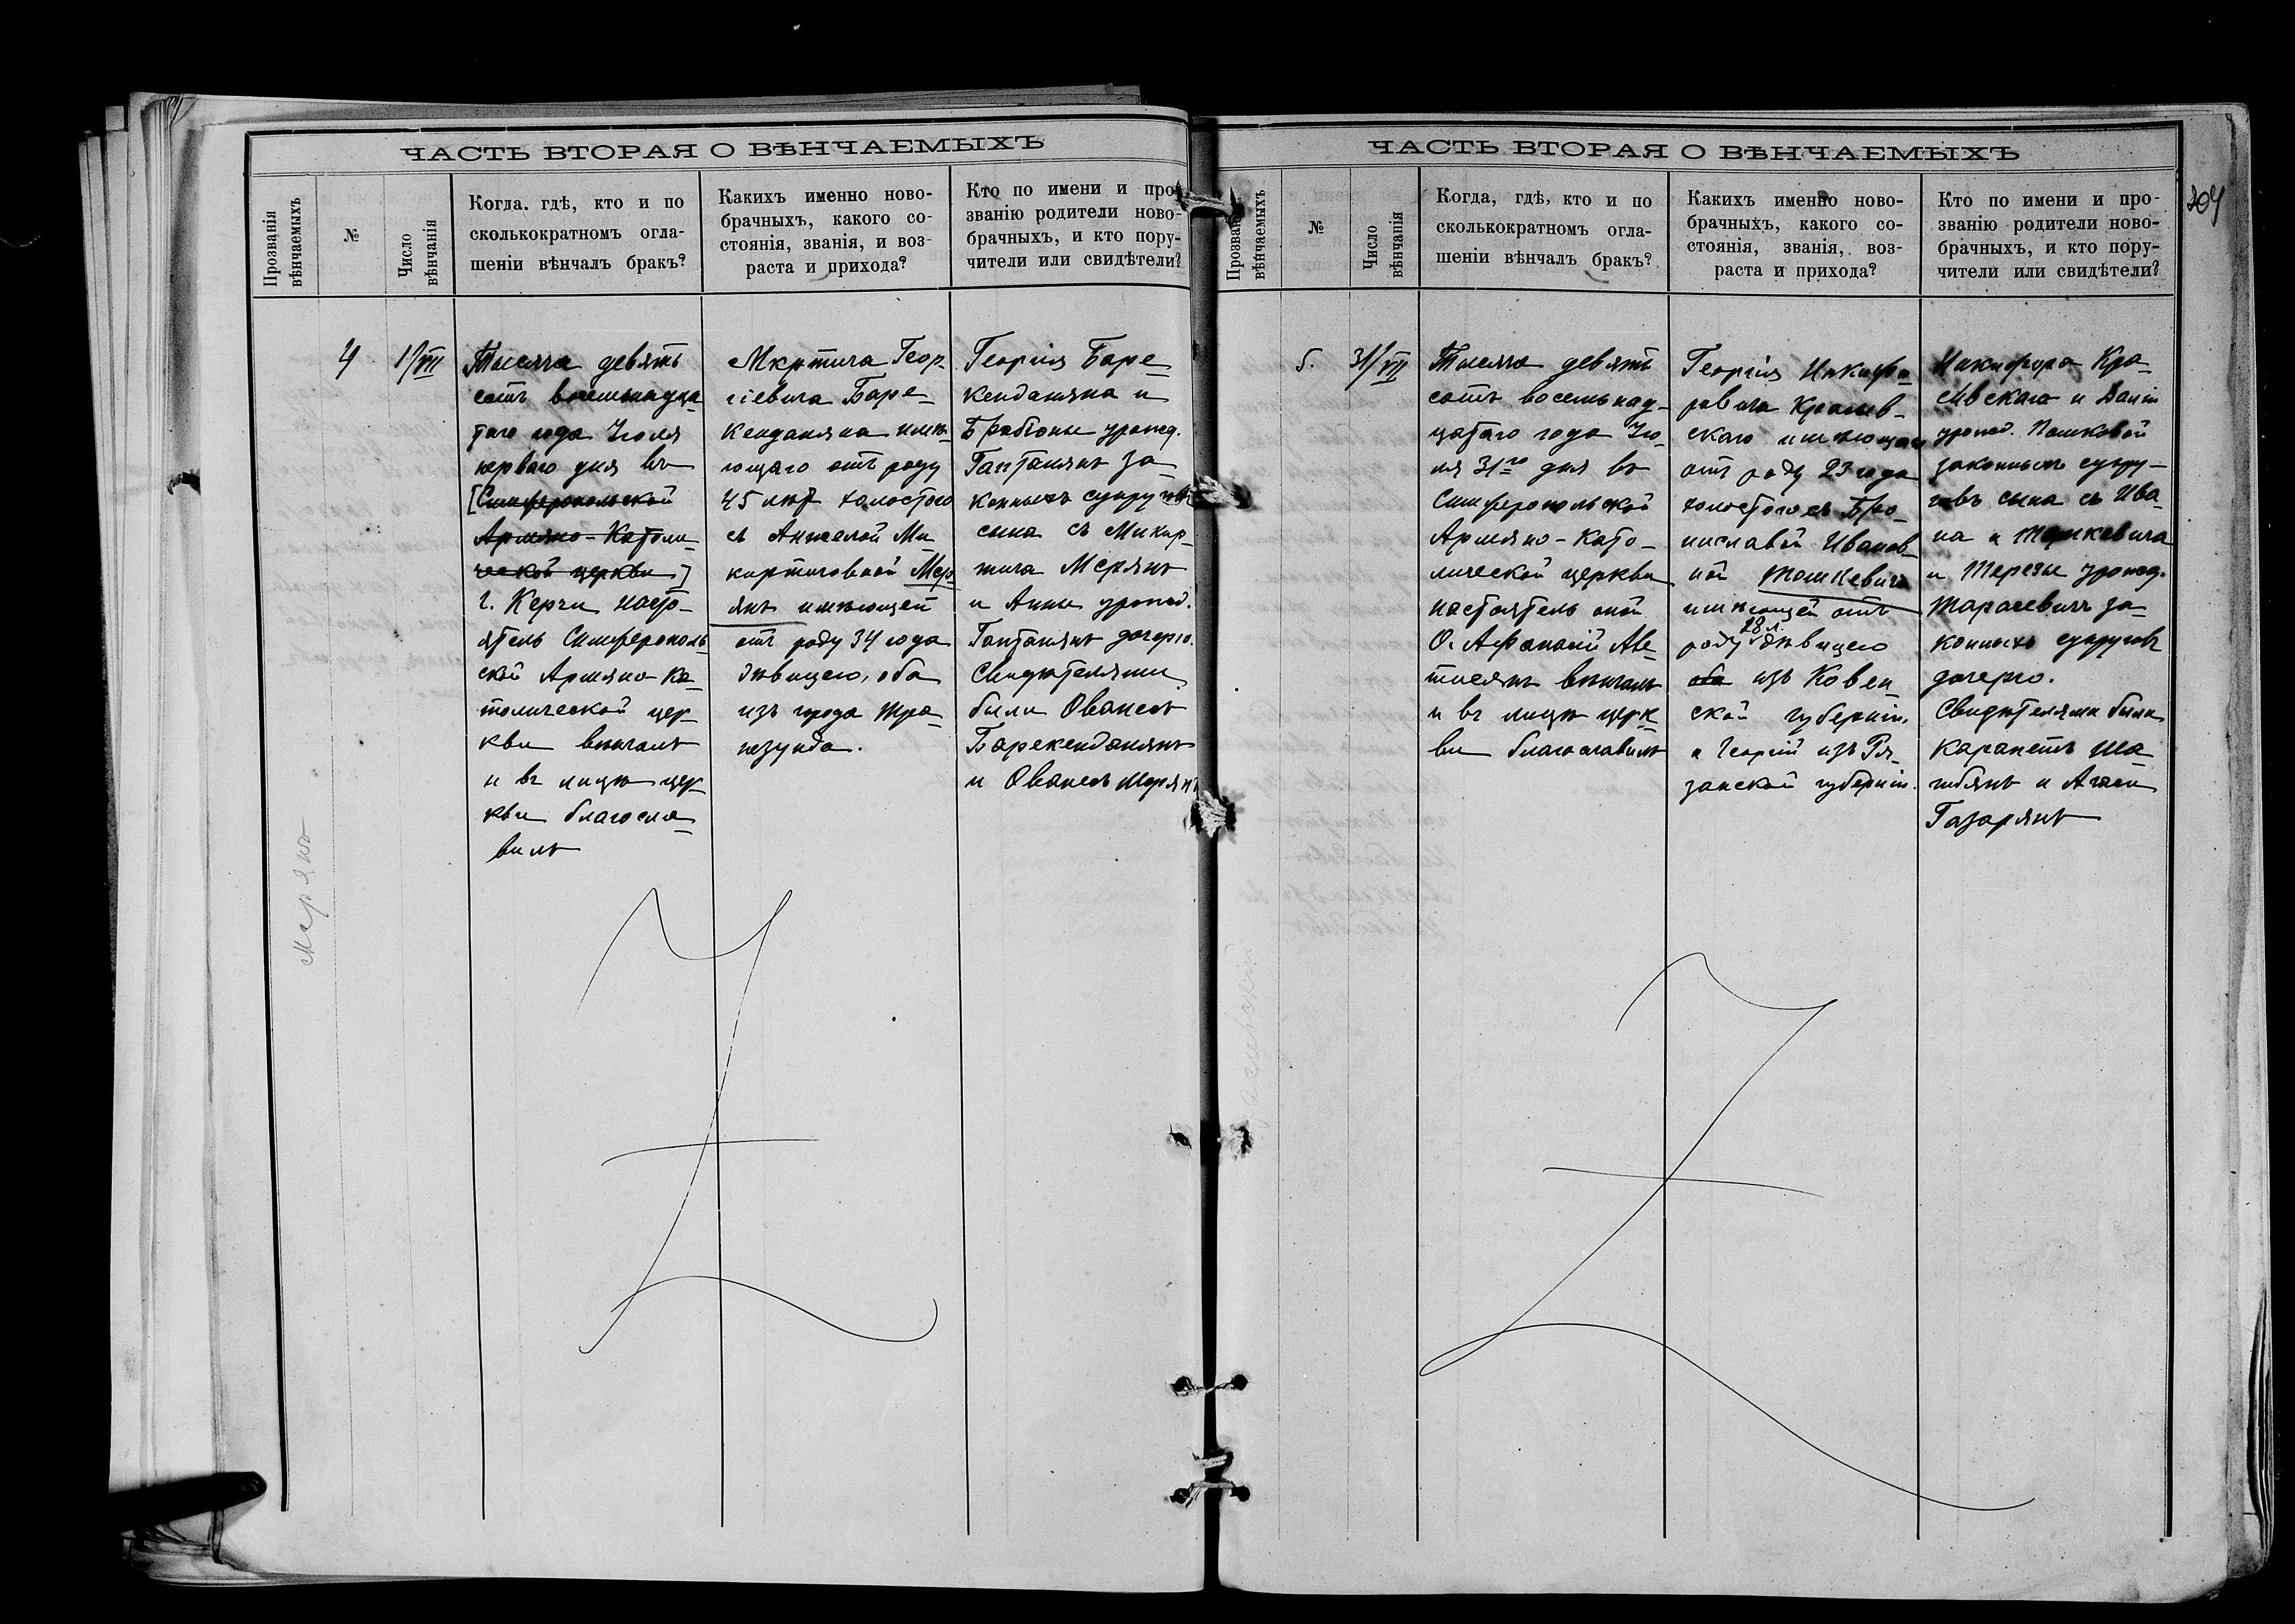 ЧАСТЬ ВТОРАЯ О ВѢНЧАЕМЫХЪ
Прозванія
вѣнчаемыхъ
№
Число
вѣнчанія
Когда. гдѣ, кто и по
сколькократномъ огла-
шеніи вѣнчалъ бракъ?
Какихъ именно ново-
брачныхъ, какого со-
стоянія, званія, и воз-
раста и прихода?
Кто по имени и про-
званію родители ново-
брачныхъ, и кто пору-
чители или свидѣтели?
4
1/VII
Тысяча девять
сотъ восемьнадца-
таго года Іюля
перваго дня въ
[Симферопольской
Армяно-Католи-
ческой церкви]
г. Керчи насто-
ятель Симферополь-
ской Армяно-Ка-
толической цер-
кви вѣнчалъ
и въ лицѣ цер-
кви благосло-
вилъ
Мкртича Геор-
гіевича Баре-
кенданяна имѣ-
ющаго отъ роду
45 лѣтъ холостого
съ Анжелой Ми-
киртичовной Мер-
янъ имѣющей
отъ роду 34 года
дѣвицею, оба
изъ города Тра-
пезунда.
Георгія Баре-
кенданяна и
урожд.
Гаптанянъ за-
конныхъ супруговъ
сына съ Микир-
тича Мерянъ
и Анны урожд.
Гаптанянъ дочерью.
Свидѣтелями
были Ованесъ
Барекенданянъ
и Ованесъ Мерянъ
Мерянъ
ЧАСТЬ ВТОРАЯ О ВѢНЧАЕМЫХЪ
304
Прозванія
вѣнчаемыхъ
№
Число
вѣнчанія
Когда, гдѣ, кто и по
сколькократномъ огла-
шеніи вѣнчалъ бракъ?
Какихъ именно ново-
брачныхъ, какого со-
стоянія, званія, воз-
раста и прихода?
Кто по имени и про-
званію родители ново-
брачныхъ, и кто пору-
чители или свидѣтели?
5.
31/VII
Тысяча девять
сотъ восемьнад-
цатаго года Ію-
ля 31го дня въ
Симферопольской
Армяно-Като-
лической церкви
настоятель оной
О. Афанасій Аве-
тисянъ вѣнчалъ
и въ лицѣ церк-
ви благославилъ
Георгія Никифо-
ровича
скаго имѣющаго
отъ роду 23 года
холостого съ Бро-
ниславой Иванов-
ной Тошкевичъ
имѣющей отъ
роду 28 л. дѣвицею
оба изъ Ковен-
ской губерніи,
а Георгій изъ Ря-
занской губерніи.
Никифора
и
урожд. Пошковой
законныхъ супру-
говъ сына съ Ива-
на и Тошкевича
и Терезы урожд.
Тарасевичъ за-
конныхъ супруговъ
дочерью.
Свидѣтелями были
Карапетъ Ша-
и
Газарянъ